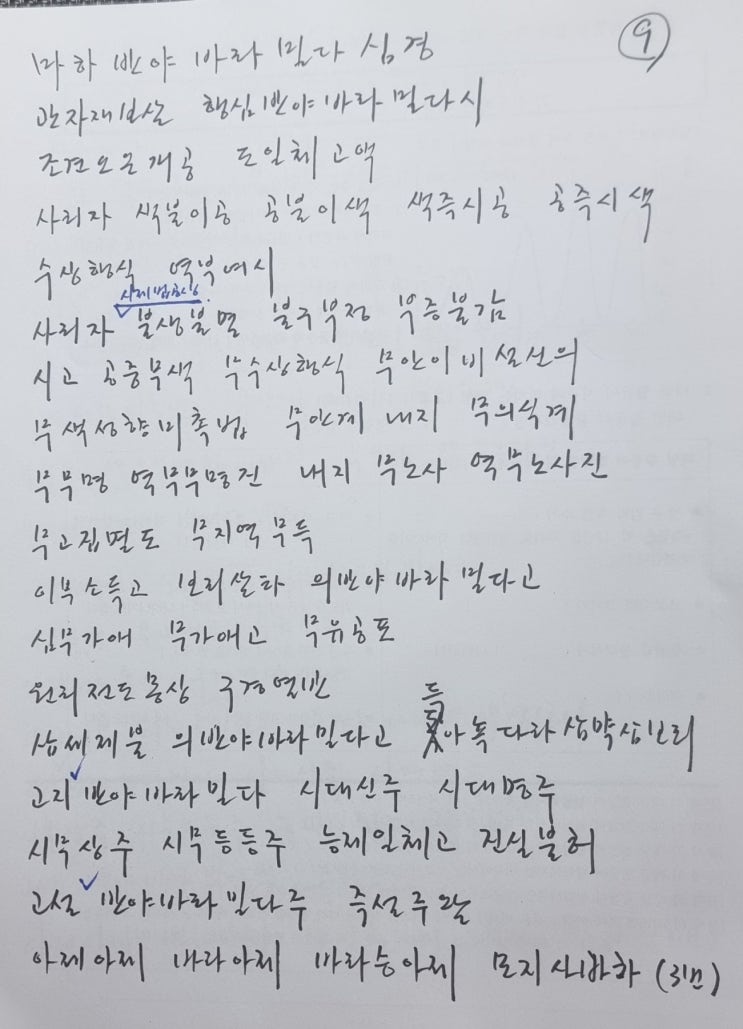 ⑨
마하 반야 바라 밀다 심경
관자재보살 행심반야바라밀다시
조견오온개공 도일체고액
사리자 색불이공 공불이색 색즉시공 공즉시색
수상행식 역부여시
시제법공상
사리자 불생불멸 불구부정 부증불감
시고 공중무색 무수상행식 무안이비설신의
무색성향미촉법 무안계 내지 무의식계
무무명 역무무명진 내지 무노사 역무노사진
무고집멸도 무지역무득
이무소득고 보리살타 의반야바라밀다고
심무가애 무가애고 무유공포
원리전도몽상 구경열반
삼세제불 의반야바라밀다고 득아녹다라삼먁삼보리
고지 반야바라밀다 시대신주 시대명주
시무상주 시무등등주 능제일체고 진실불허
고설 반야바라밀다주 즉설주왈
아제아제 바라아제 바라승아제 모지사바하 (3번)